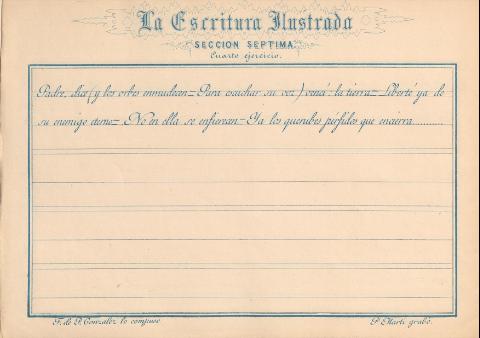 La Escritura Ilustrada
SECCION SEPTIMA
Cuarto ejercicio.
Padre, dice (y los orbes enmudecen= Para escuchar su voz) vencí: la tierra= Liberté ya de
su enemigo eterno= No en ella se enfierezan= Ya los querubes pérfidos que encierra..........
F. de P. Gonzalez lo compuso
P. Martí grabó.